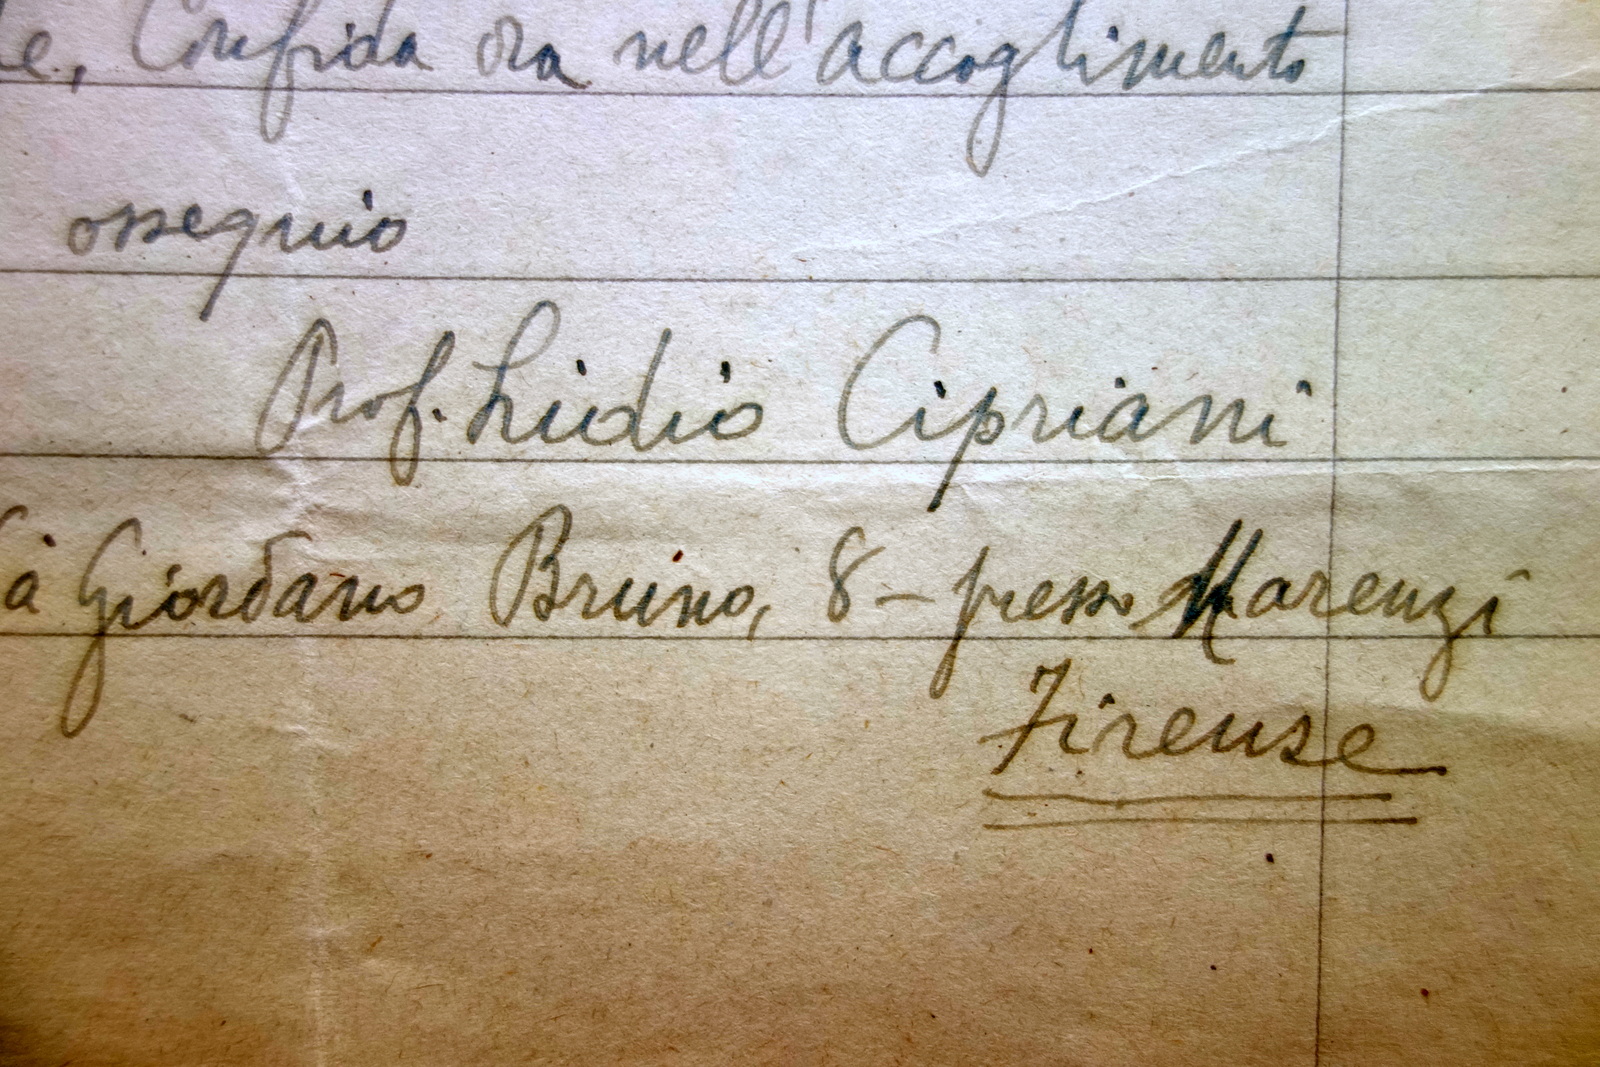 e, Confida ora nell'accoglimento
ossequio
Prof. Lidio Cipriani
a Giordano Bruno, 8 - presso Marenzi
Firenze